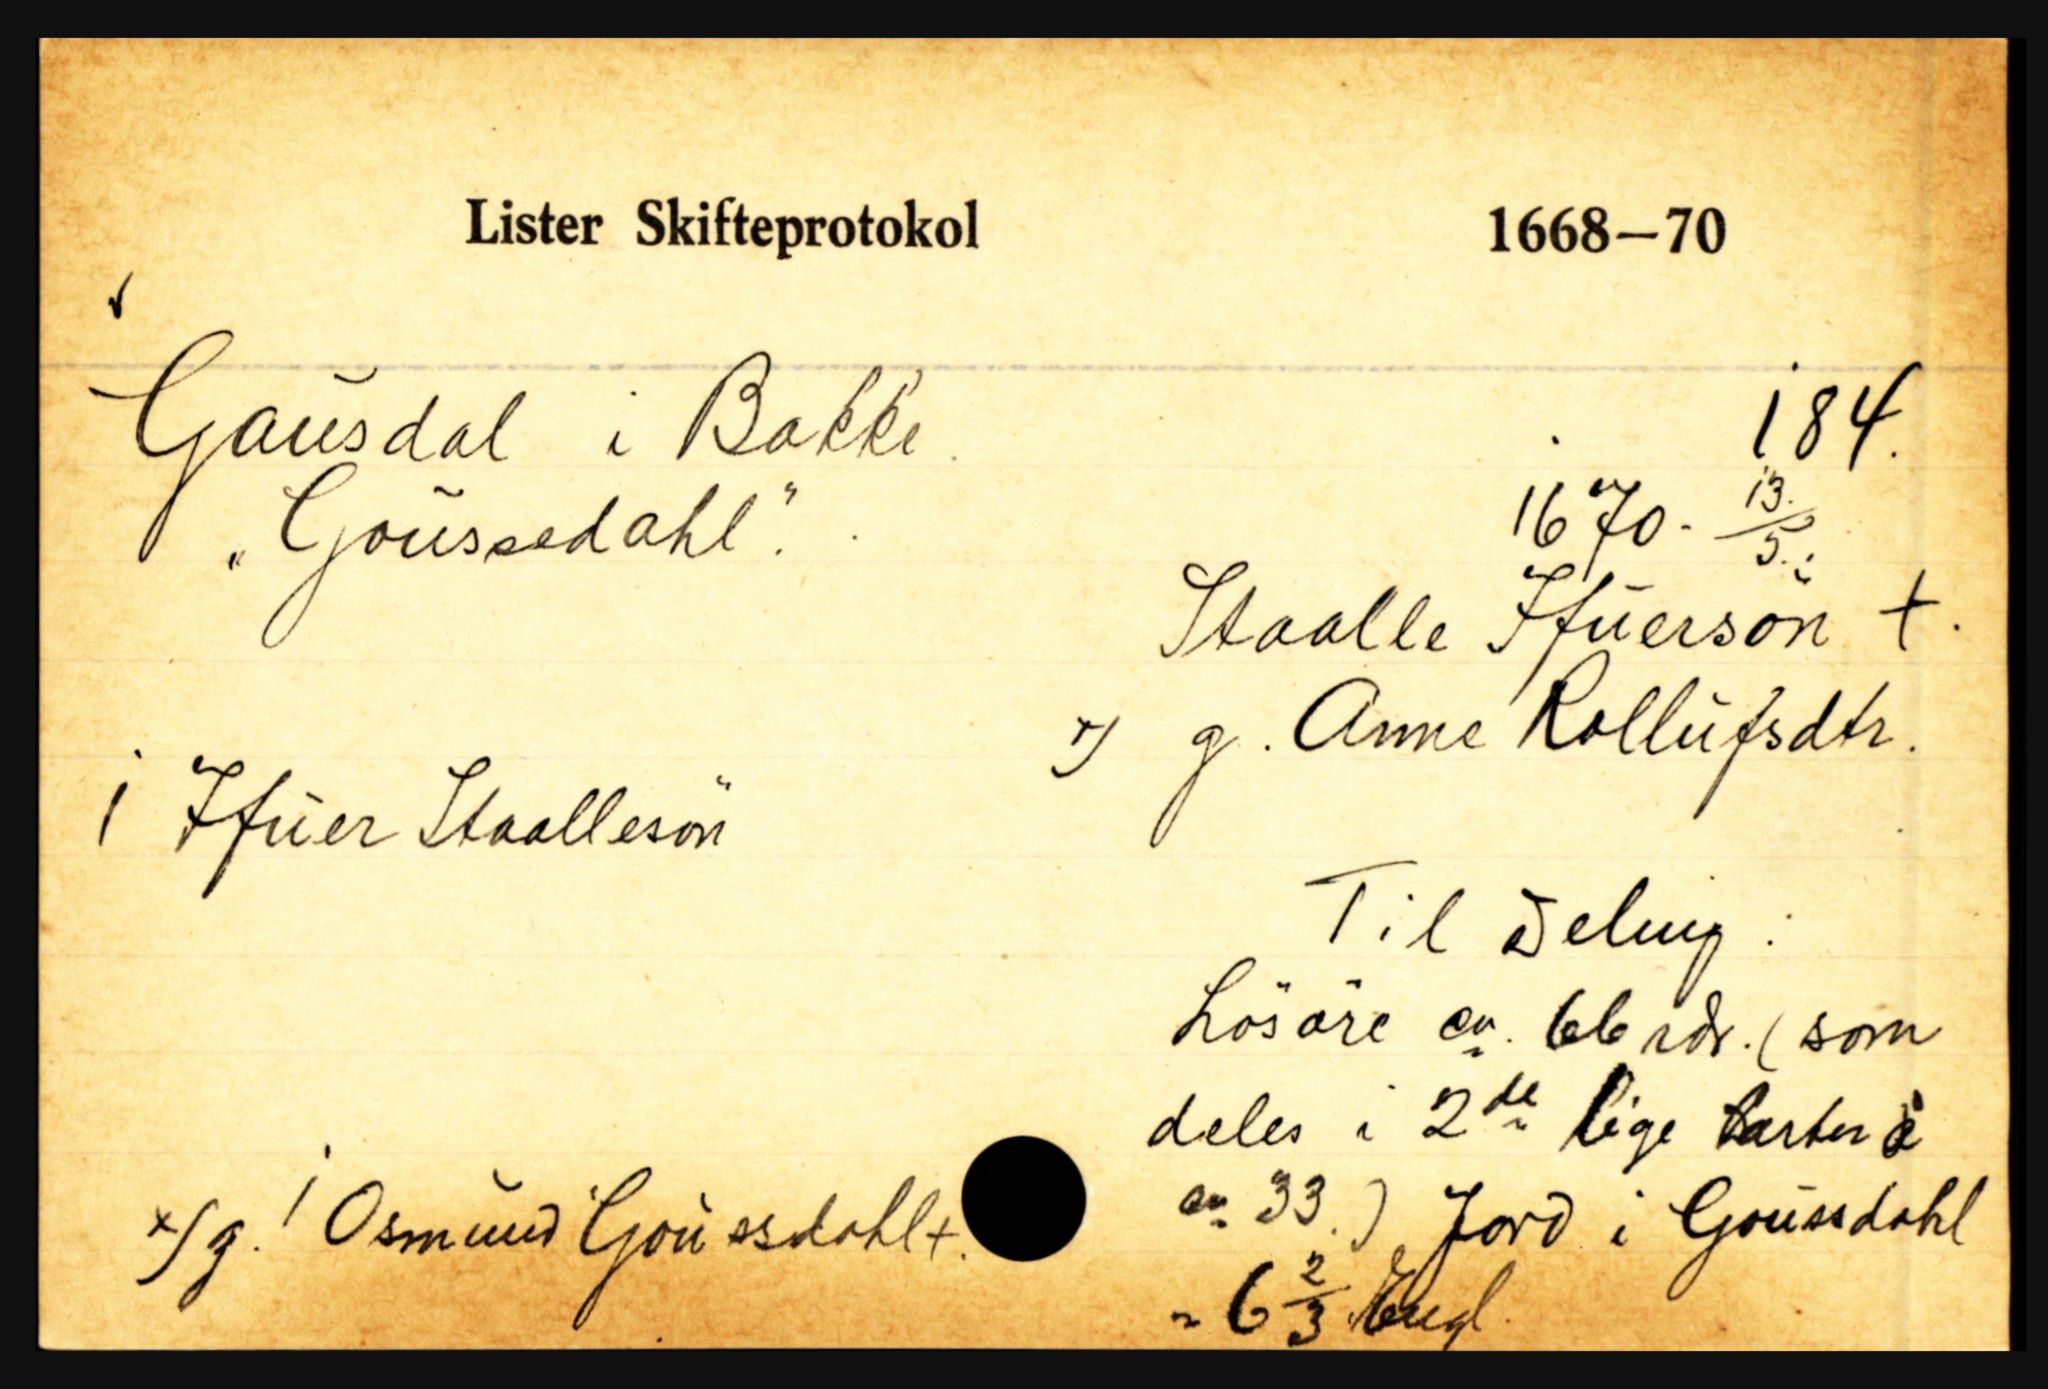 Lister Skifteprotokol 1668—70
Gausdal i Bakke. 184.
„Goussedahl". 1670 - 13/5.
Staalle Ifuersön +.
x/ g. Anne Rollufsdtr.
1 Ifuer Staallesön
Til Deling:
Lösöre ca. 66 rdr. (som
deles i 2de lige parter à
ca 33.) Jord i Goussdahl
x/ g. 1 Osmund Goussdahl +.
- 6 2/3 Engl.